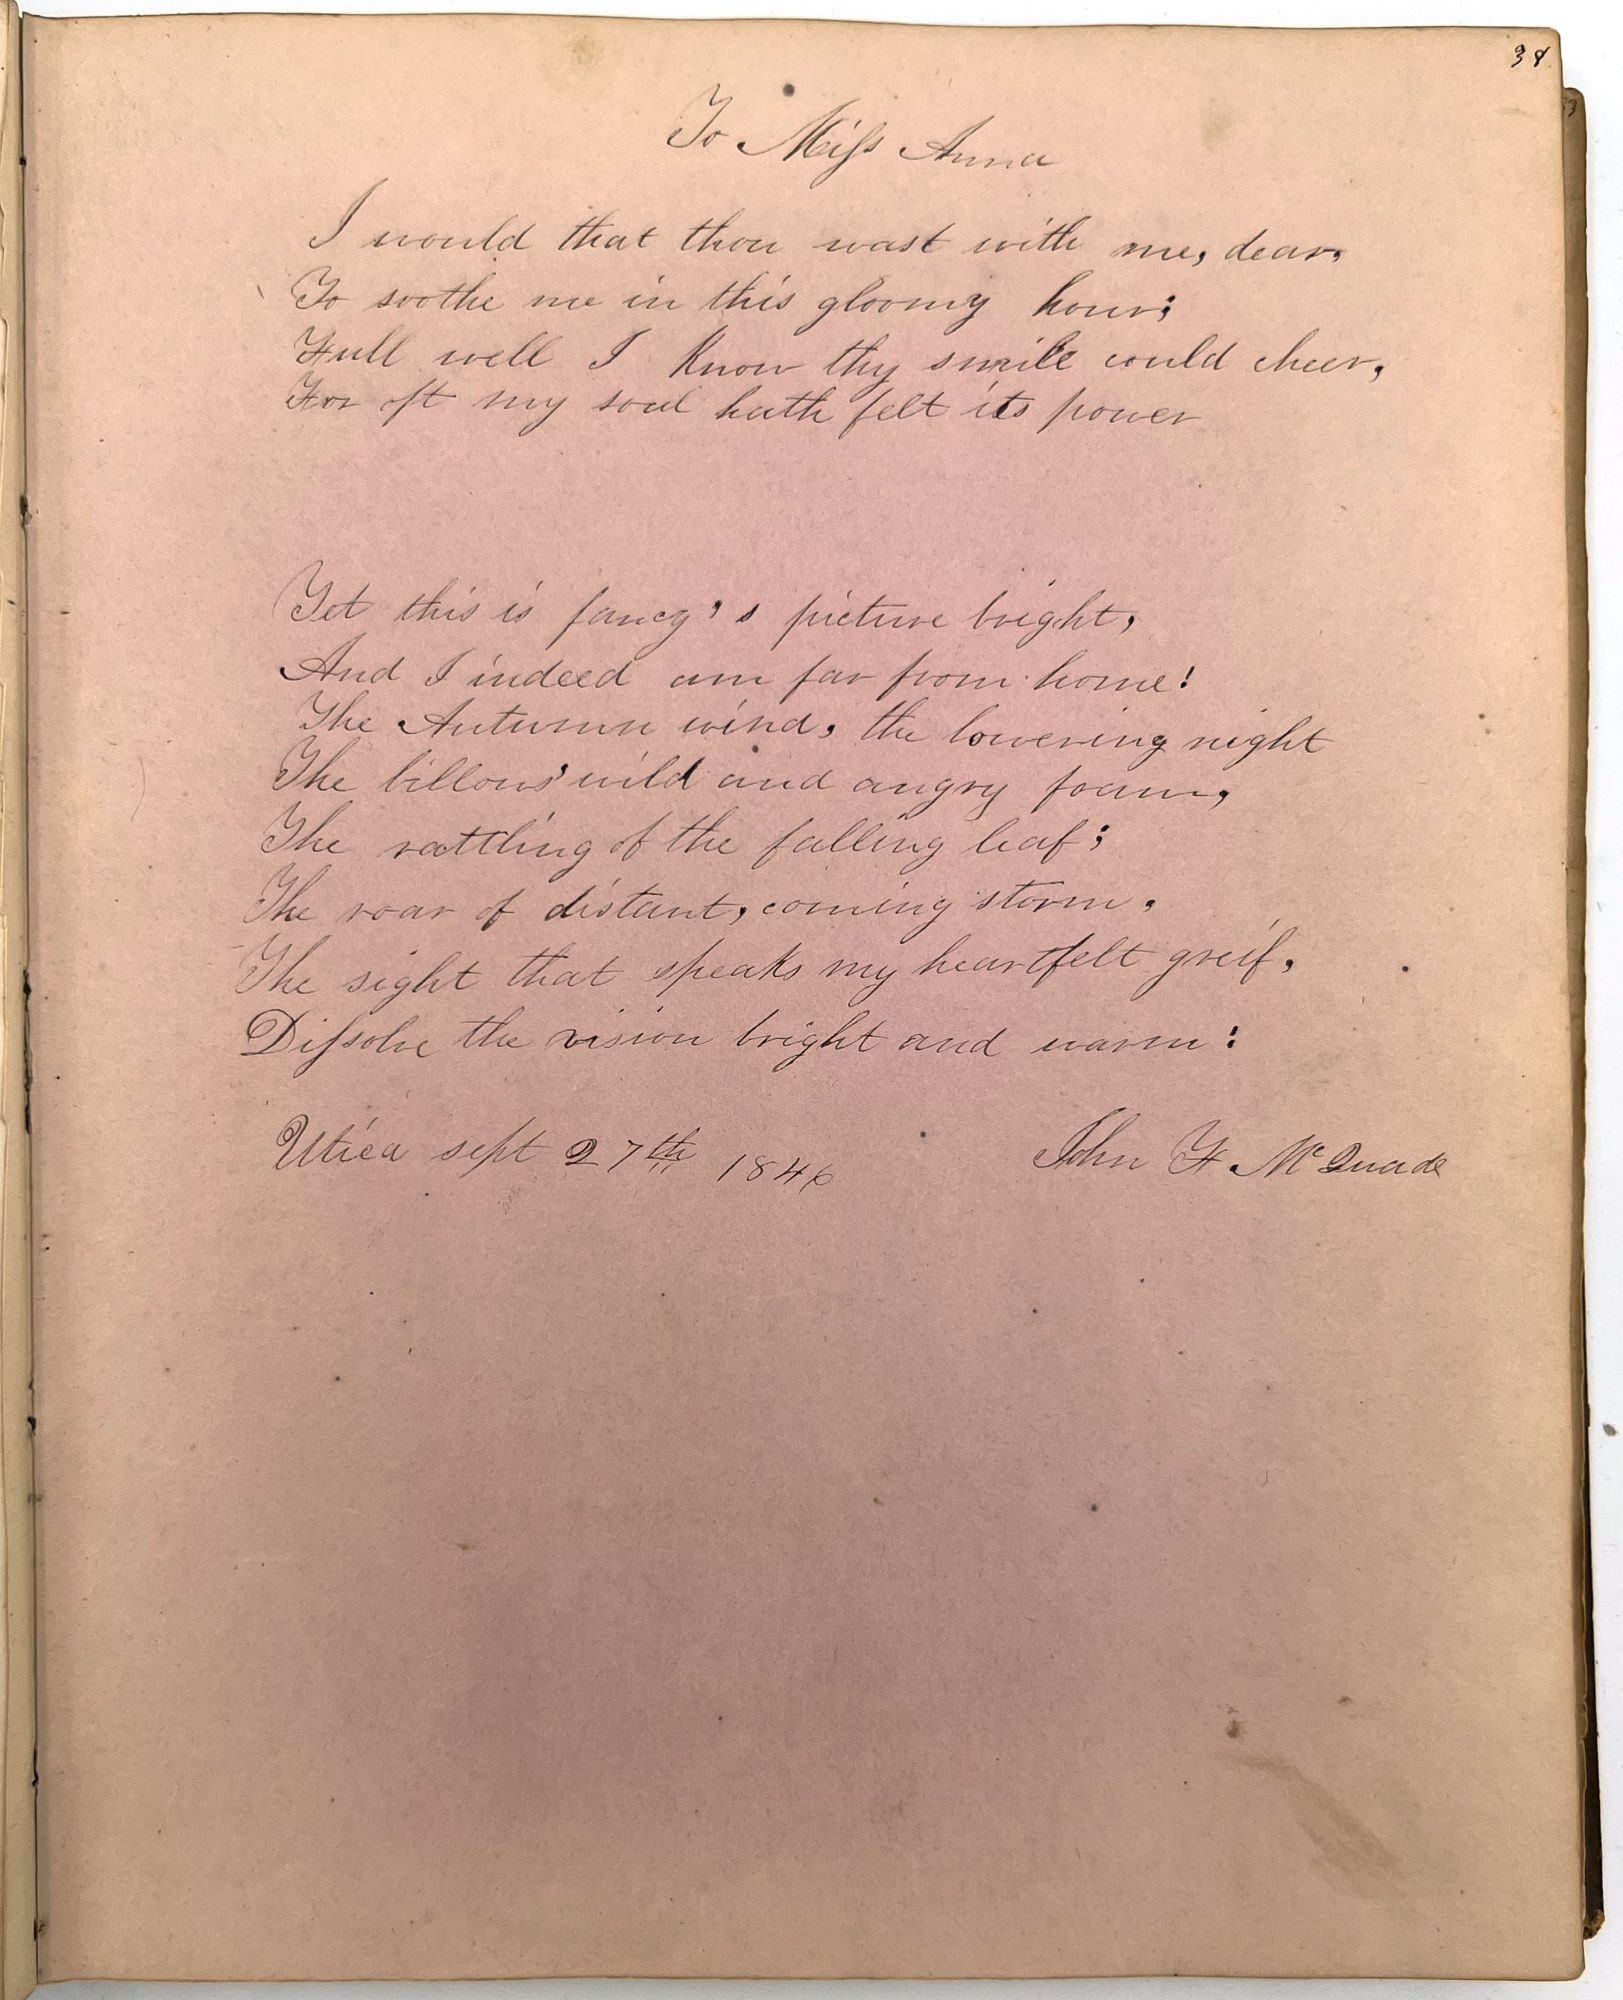 38
To Miſs Anna
I would that thou wast with me, dear,
To soothe me in this gloomy hour;
Full well I know thy smile could cheer,
For oft my soul hath felt its power
Yet this is fancy's picture bright,
And I indeed am far from home!
The Autumn wind, the lowering night
The billows' wild and angry foam,
The rattling of the falling leaf;
The roar of distant, coming storm,
The sight that speaks my heartfelt greif,
Diſsolve the vision bright and warm:
Utica sept 27th 1846
John F McQuade